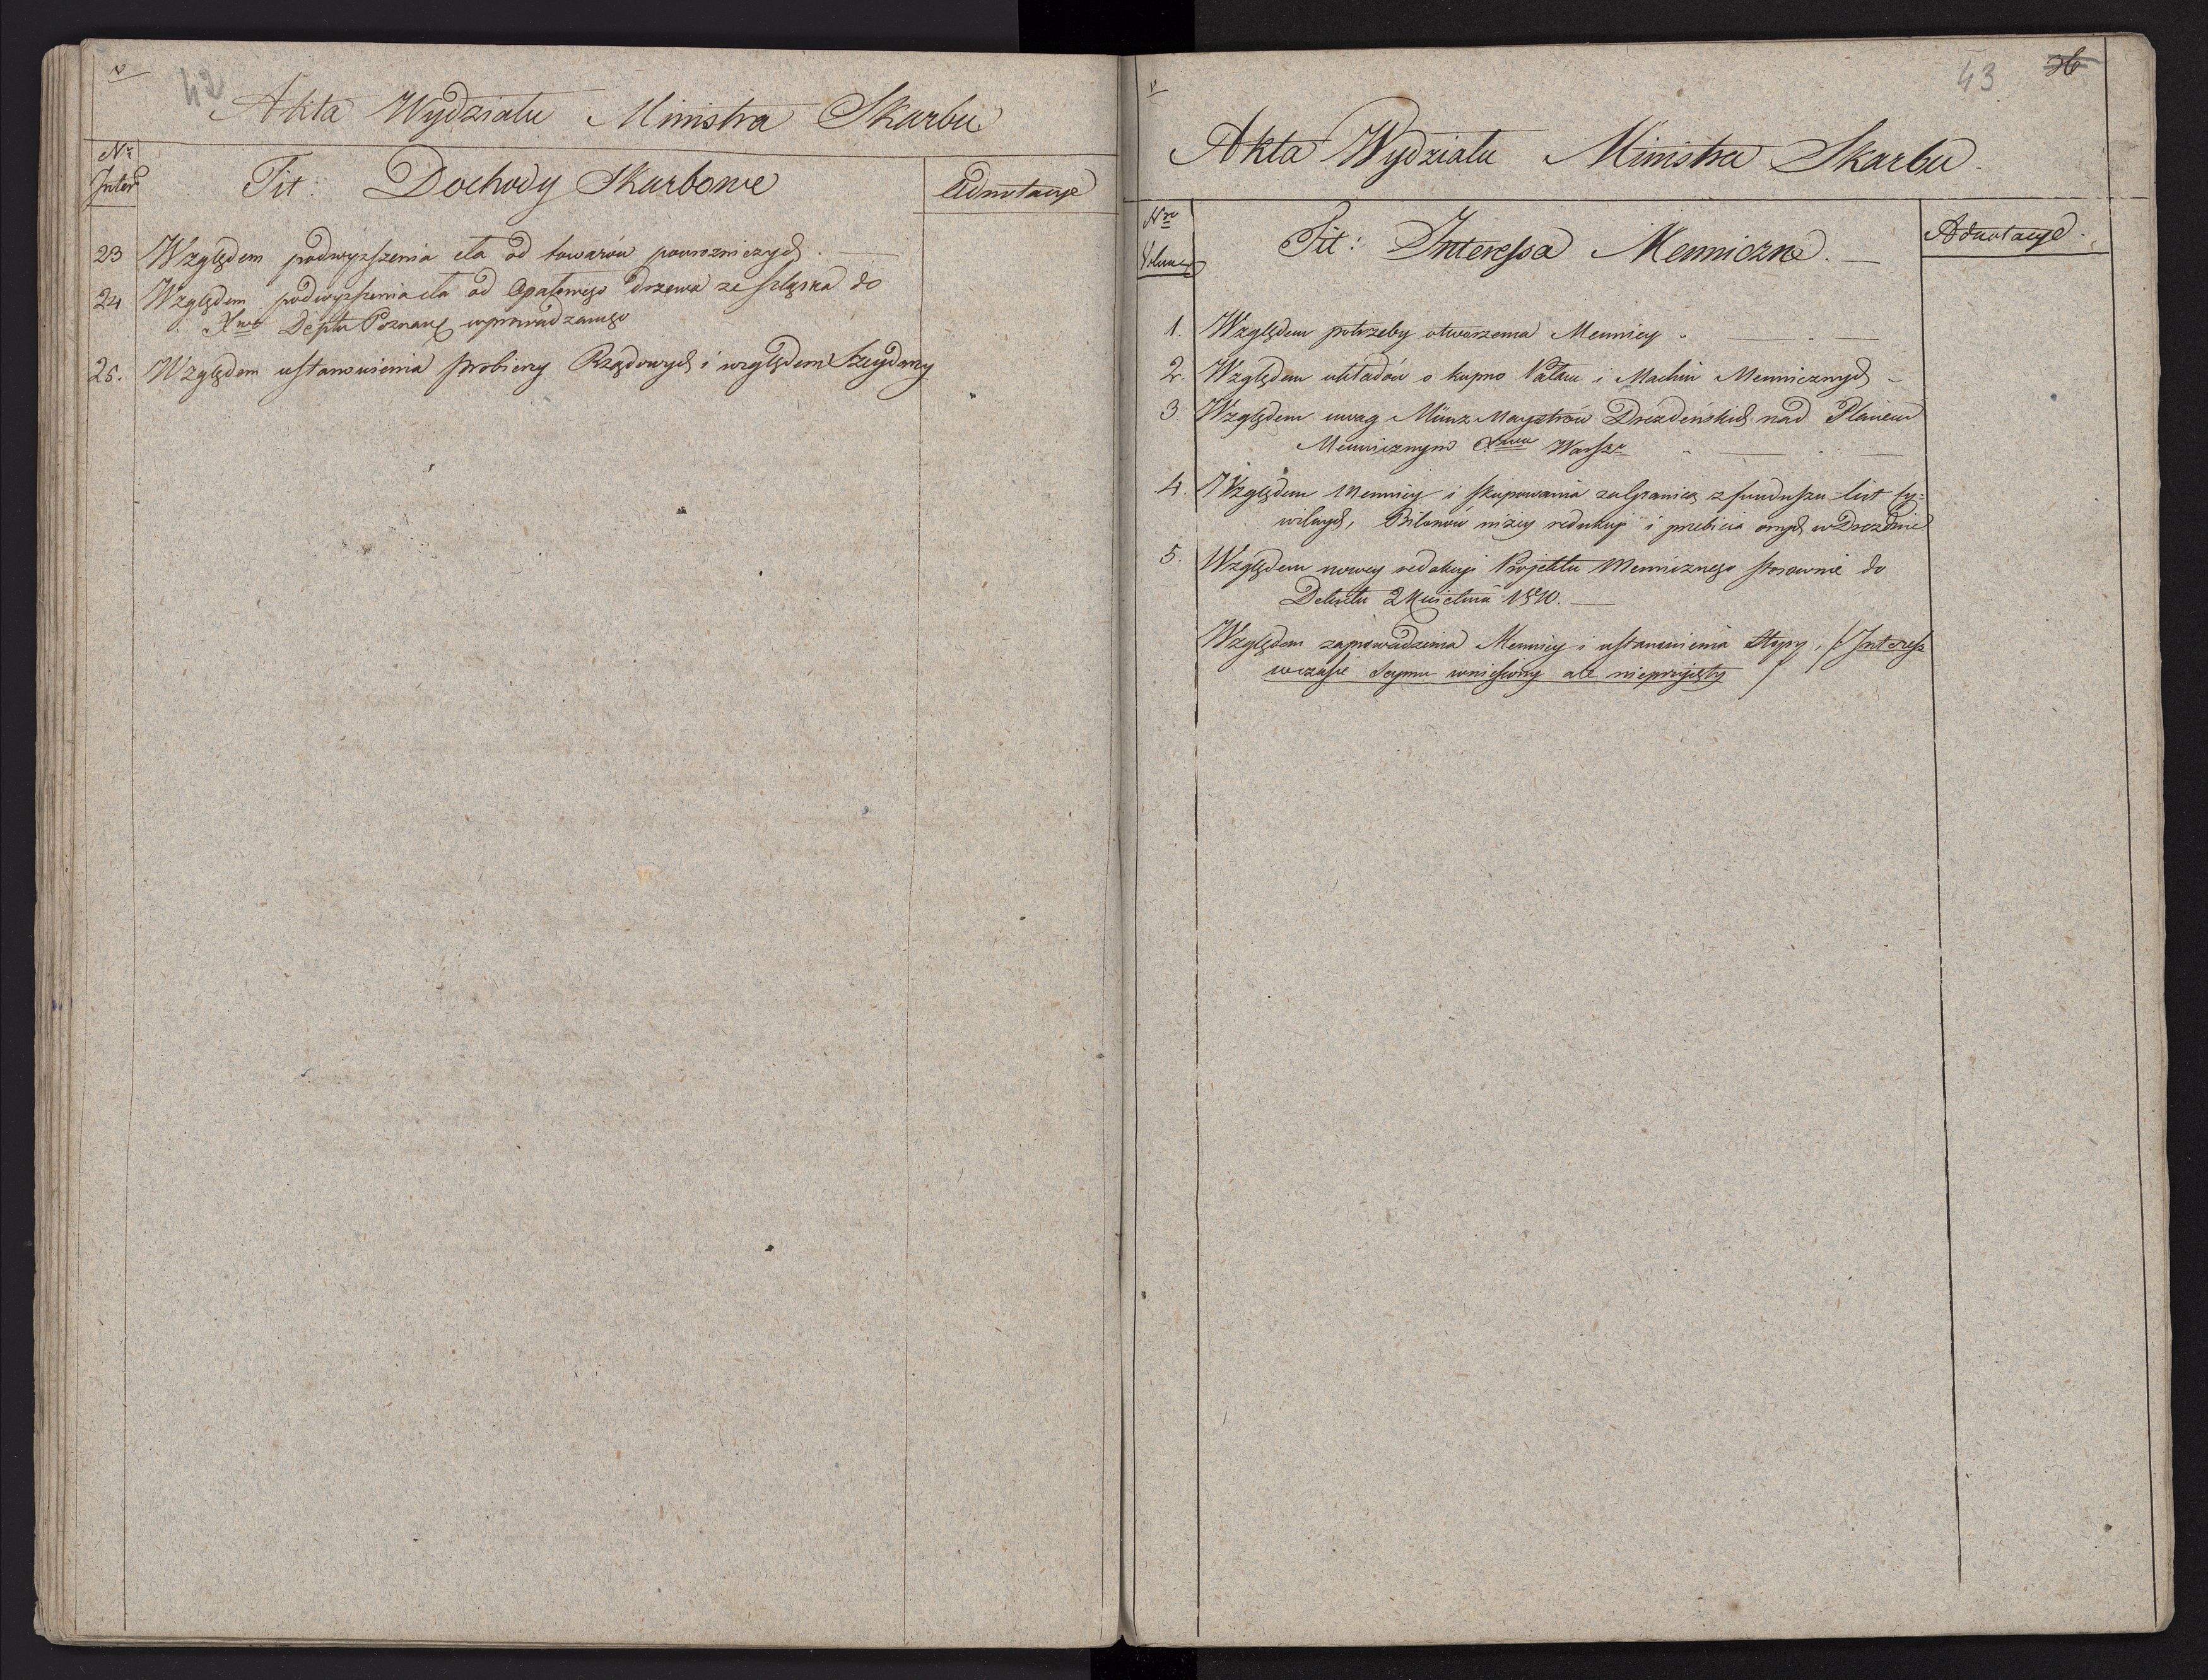 42
Akta Wydziału Ministra Skarbu
Nr
Inter
Tit: Dochody Skarbowe
Adnotacye
23 Względem podwyższenia cła od towarów powrozniczych. —
24 Względem podwyższenia cła od Opałowego drzewa ze Szląska do
Xwa Deptu Poznań wprowadzanego
25. Względem ustanowienia Probierzy Rządowych i względem
43 36
Akta Wydziału Ministra Skarbu.
Nro
Volum
Tit: Interessa Menniczne. —
Adnotacye.
1. Względem potrzeby otworzenia Mennicy
2. Względem układów o kupno Pałacu i Machin Mennicznych
3. Względem uwag Münz Maystrów Drezdeńskich nad Planem
Mennicznym Xtwa Warszo
4. Względem Mennicy i skupowania zagranicą z funduszu list cy=
wilnych, Bilonów niżey redukcyi i przebicia onych w Dreznie
5. Względem nowey redakcyi Projektu Mennicznego stosownie do
Dekretu 2 Kwietnia 1810. —
Względem zaprowadzenia Mennicy i ustanowienia Stopy, /: Interess
w czasie Seymu wniesiony ale nieprzyięty /